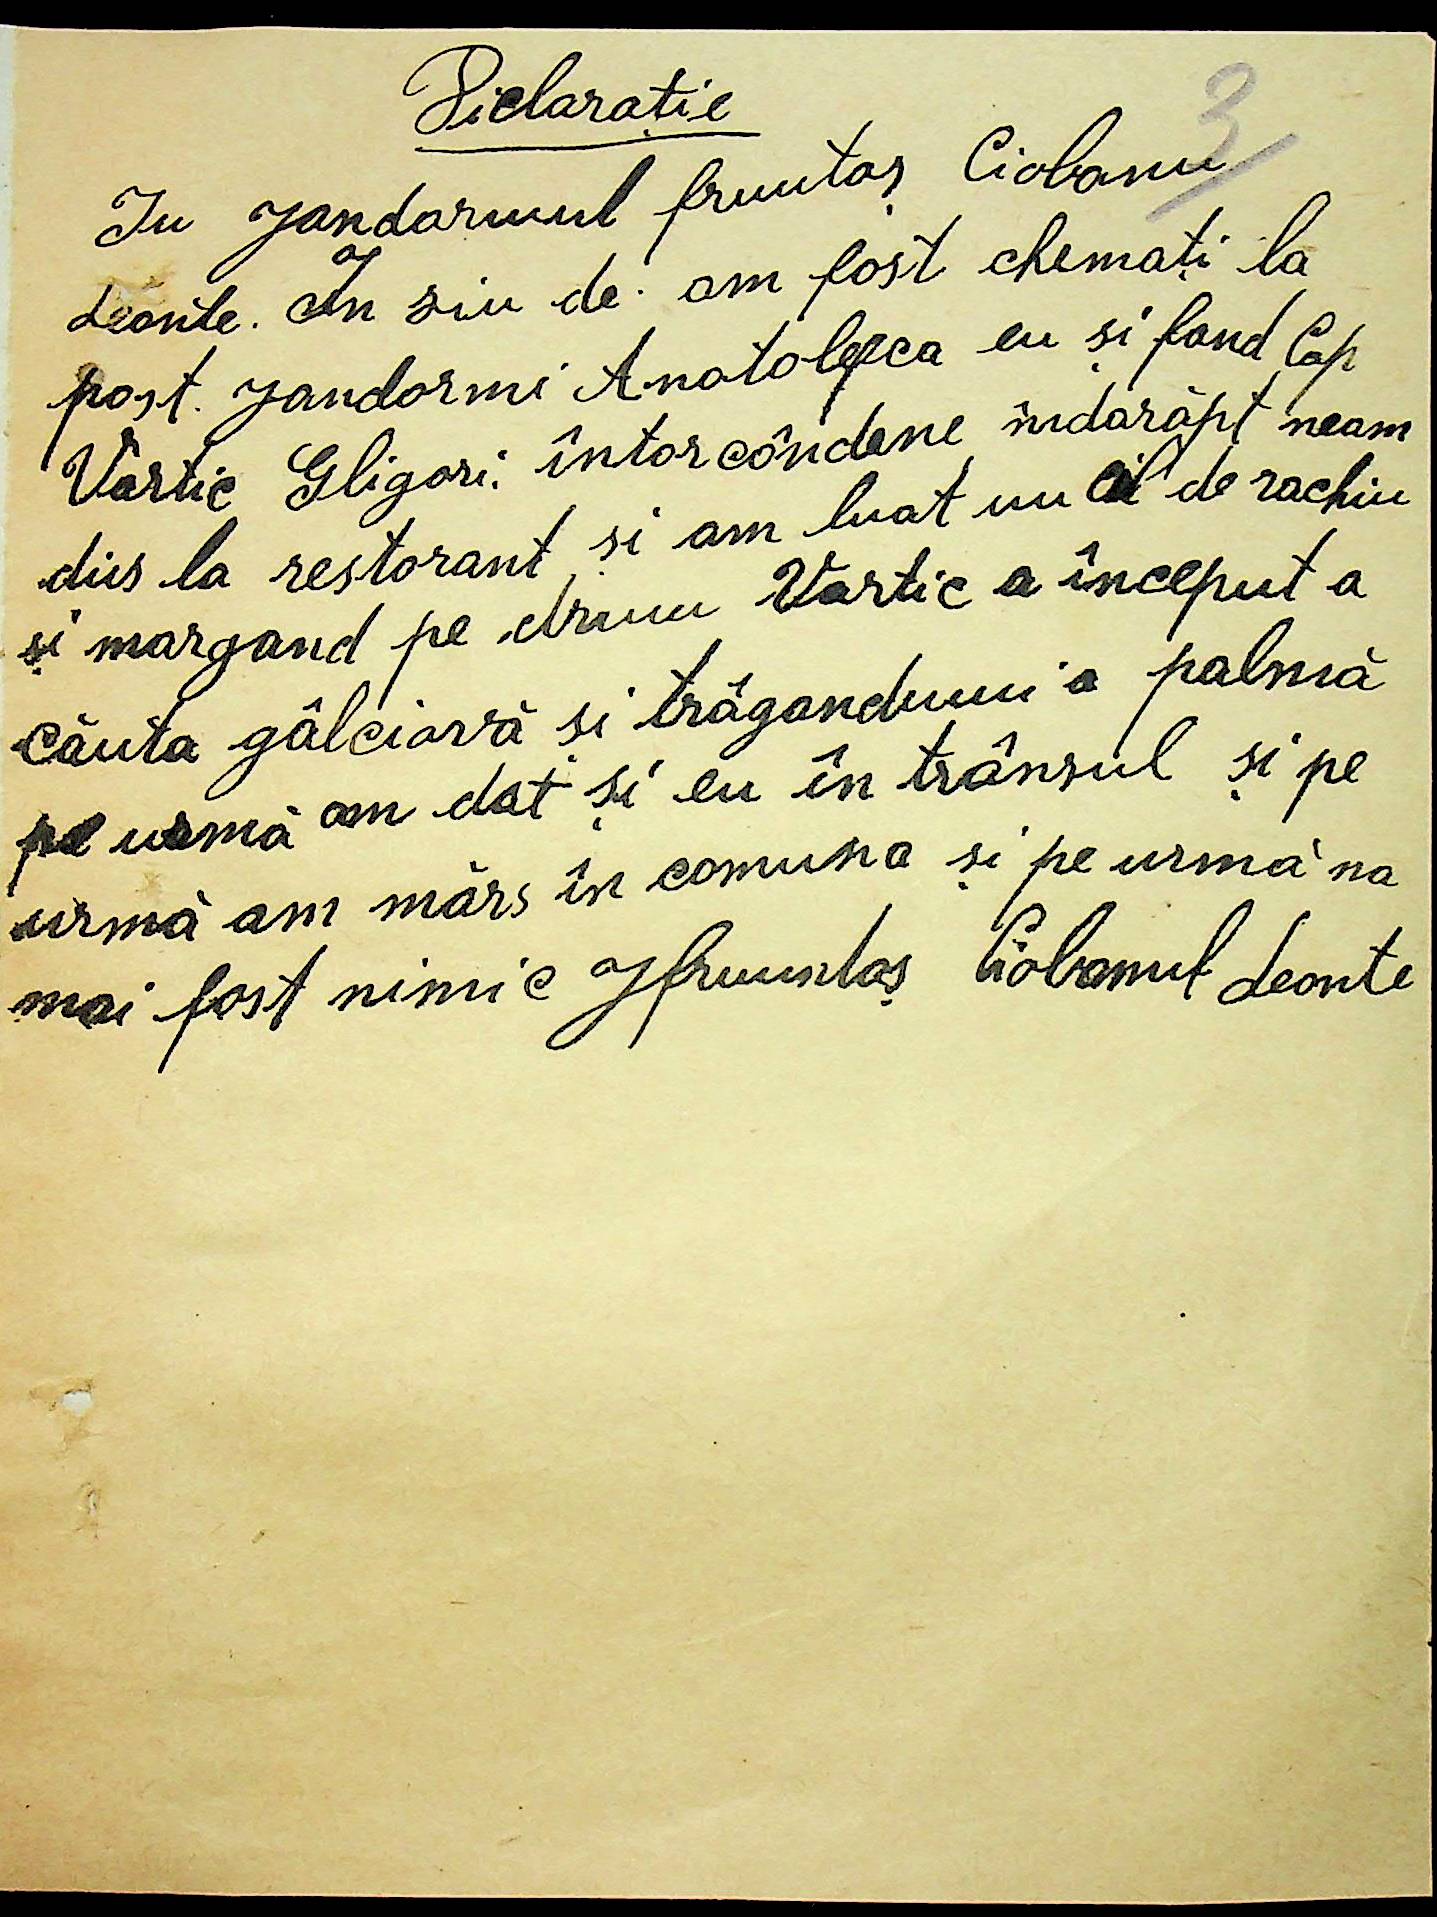 Diclarație
3
Iu jandarmul fruntaș Ciobanu
Leonte. În ziu de. am fost chemați la
post. jandarmi Anatolefca eu și fiand Cap
Vartic Gligori. întorcôndene îndarăpt neam
dus la restorant și am luat un de rachiu
și margand pe drum Vartic a început a
căuta gâlciavă și trăgandumi a palmă
pe urmă am dat și eu în trânsul și pe
urmă am mărs în comuna și pe urmă na
mai fost nimic J fruuntaș Ciobanul Leonte